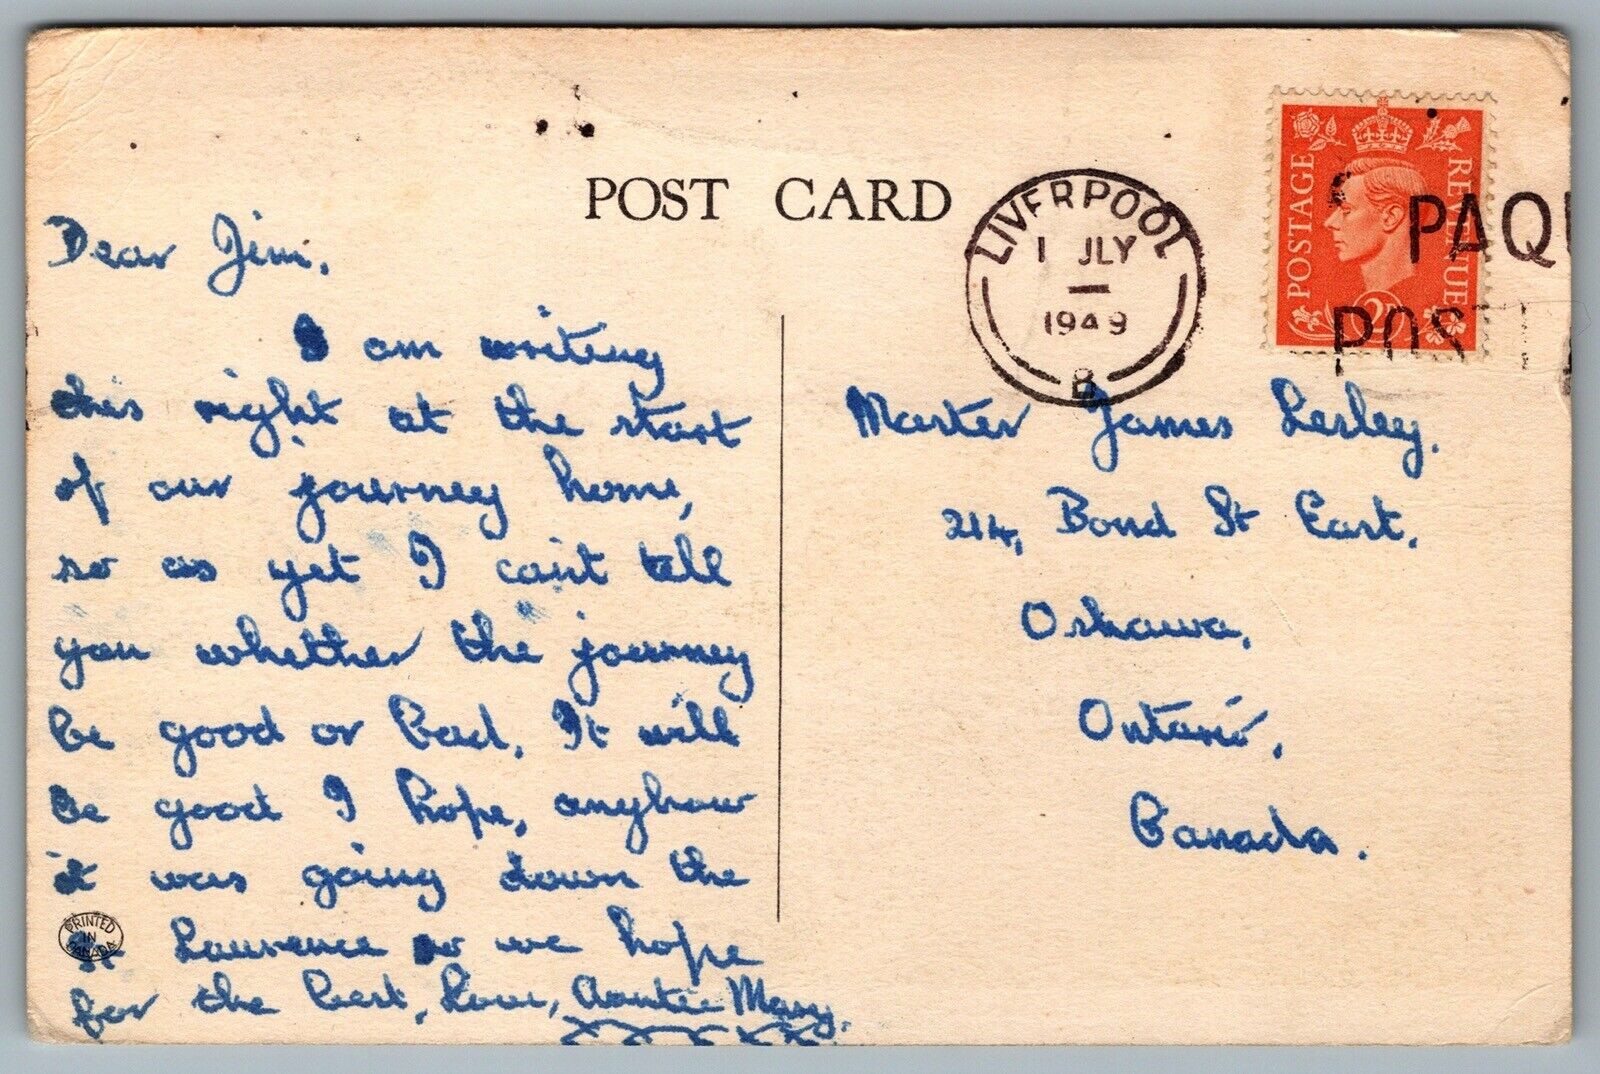 POST CARD
LIVERPOOL
1 JLY
1949
B
POSTAGE
REVENUE
2D
PAQU
POST
Dear Jim,
I am writing
this right at the start
of our journey home,
so as yet I can't tell
you whether the journey
be good or bad. It will
be good I hope, anyhow
it was going down the
St Laurence so we hope
for the best, Love, Auntie Mary.
PRINTED
IN
CANADA
Master James Lesley.
214, Bond St East,
Oshawa,
Ontario,
Canada.